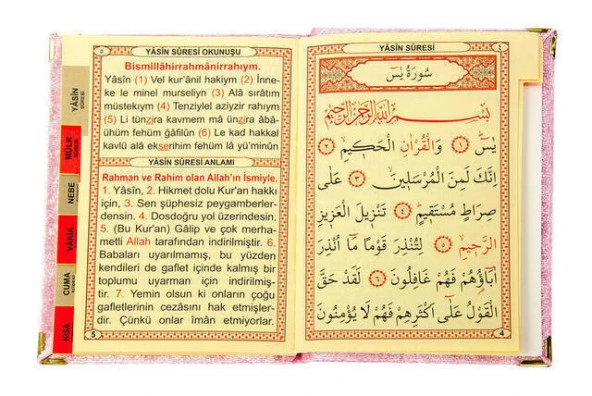 YÂSİN SÛRESİ
٤
سُورَةُ يٰسٓ
بِسْمِ اللّٰهِ الرَّحْمٰنِ الرَّحِيمِ
يٰسٓ ﴿١﴾ وَالْقُرْاٰنِ الْحَكِيمِ ﴿٢﴾
اِنَّكَ لَمِنَ الْمُرْسَلِينَ ﴿٣﴾ عَلٰى
صِرَاطٍ مُسْتَقِيمٍ ﴿٤﴾ تَنْزِيلَ الْعَزِيزِ
الرَّحِيمِ ﴿٥﴾ لِتُنْذِرَ قَوْمًا مَٓا اُنْذِرَ
اٰبَٓاؤُ۬هُمْ فَهُمْ غَافِلُونَ ﴿٦﴾ لَقَدْ حَقَّ
الْقَوْلُ عَلٰٓى اَكْثَرِهِمْ فَهُمْ لَا يُؤْمِنُونَ
4
٥
YÂSİN SÛRESİ OKUNUŞU
Bismillâhirrahmânirrahıym.
Yâsîn (1) Vel kur'ânil hakiym (2) İnne-
ke le minel murseliyn (3) Alâ sırâtım
müstekıym (4) Tenziylel aziyzir rahıym
(5) Li tünzira kavmem mâ ünzira âbâ-
ühüm fehüm ğâfilûn (6) Le kad hakkal
kavlü alâ ekserihim fehüm lâ yü'minûn
YÂSİN SÛRESİ ANLAMI
Rahman ve Rahim olan Allah'ın İsmiyle.
1. Yâsîn, 2. Hikmet dolu Kur'an hakkı
için, 3. Sen şüphesiz peygamberler-
densin. 4. Dosdoğru yol üzerindesin.
5. (Bu Kur'an) Gâlip ve çok merha-
metli Allah tarafından indirilmiştir. 6.
Babaları uyarılmamış, bu yüzden
kendileri de gaflet içinde kalmış bir
toplumu uyarman için indirilmiş-
tir. 7. Yemin olsun ki onların çoğu
gafletlerinin cezasını hak etmişler-
dir. Çünkü onlar îmân etmiyorlar.
5
YÂSİN
MÜLK
NEBE
VAKIA
CUMA
KISA